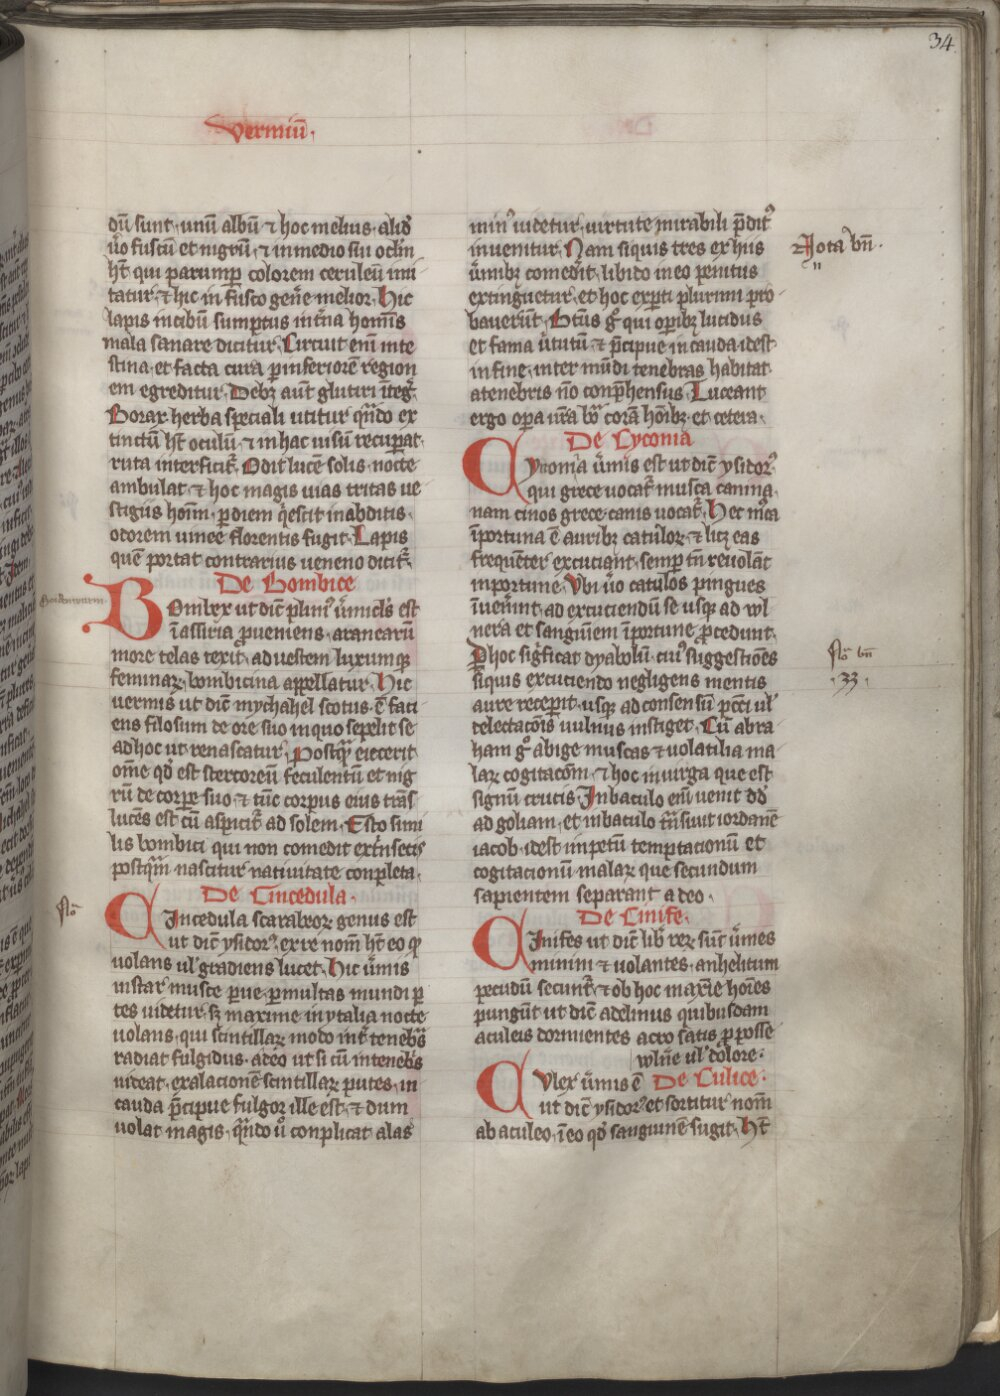 34.
Vermiū.
dū sunt. unū albū ⁊ hoc melius. aliđ
ůo fuscū et nigrū. ⁊ in medio sui oclm̄
hꝫ qui parump̱ colorem ceruleū imi
tatur. ⁊ hic in fusco geñe melior. Hic
lapis in cibū sumptus int̄na homīs
mala sanare dicitur. Circuit eni᷑ inte
stina. et facta cura ꝑ inferiorē region
em egreditur. Debꝫ aūt glutiri īteg̊.
Borax herba speciali utitur qn̄do ex
tinctū hꝫ oculū. ⁊ in hac uisū recuperat.
ruta interficit᷑. Odit lucē solis. nocte
ambulat. ⁊ hoc magis uias tritas ue
stigiis hom̄. ꝑ diem q̇escit in abditis.
odorem uinee florentis fugit. Lapis
quē portat contrarius ueneno dicit᷑.
De Bombice
Bombex ut dic̄ plini᷒ ůmicl̓s est
ī assiria ꝓueniens. aranearū
more telas texit. ad uestem luxumqꝫ
feminaꝝ. bombicina appellatur. Hic
uermis ut dic̄ mychahel scotus. ē faci
ens filosum de ore suo in quo sepelit se
ad hoc ut renascatur. Postq̄ȝ eiecerit
om̄e qđ est stercoreū feculentū et nig
rū de corpe suo. ⁊ tūc corpus eius trās
lucēs est cū aspicit᷑ ad solem. Esto simi
lis bombici qui non comedit ext̓nsecis
postq̄ȝ nascitur natiuitate conpleta.
De Cincedula.
Cincedula scarabeoꝝ genus est
ut dic̄ ysidor᷒. ex re nom̄ hꝫ eo ꝙ
uolans ul̓ gradiens lucet. Hic ůmis
instar musce parue. ꝑ multas mundi ꝑ
tes uidetur. sꝫ maxime in ytalia nocte
uolans. qui scintillaꝝ modo int᷑ tenebᷓs
radiat fulgidus. adeo ut si cū in tenebᷓs
uideat. exalacionē scintillaꝝ putes. in
cauda p̄cipue fulgor ille est. ⁊ dum
uolat magis. qn̄do ů conplicat alas
min᷒ uidetur. uirtute mirabili p̄dit᷒
inuenitur. Nam siquis tres ex hiis
ůmibꝫ comed̓it. libido in eo penitus
extinguetur. et hoc exp̱ti plurimi pro
bauerūt. Btūs g̊ qui opibꝫ lucidus
et fama ůtutū. ⁊ p̄cipue in cauda id est
in fine. inter mūdi tenebras habitat.
a tenebris nō conp̄hensus. Luceant
ergo opera ur̄a bōa corā hōibꝫ. et cetera.
De Cyconia
Cyconia ůmis est ut dic̄ ysidor᷒.
qui grece uocat᷑ musca canina.
nam cinos grece canis uocat᷑. Hec m᷒ca
īportuna ē auribꝫ catuloꝝ. ⁊ licꝫ eas
frequēter excutiant. semper tn̄ reuolāt
inportune. Vbi ůo catulos pingues
īuen̓int. ad excutiendū se usqꝫ ad wl
nera et sanguinem īportune ꝓcedunt.
P hoc sig̓ficat dyabolū. cui᷒ suggestiōes
siquis excutiendo negligens mentis
aure recep̱it. usqꝫ ad consensū pcc̄i ul̓
delectacōis uulnus instiget. Cū abra
ham g̊ abige muscas ⁊ uolatilia ma
laꝝ cogitacōm̄. ⁊ hoc in uirga que est
signū crucis. In baculo eni᷑ uenit dđ
ad goliam. et in baculo tn̄siuit iordanē
iacob. id est inpetū temptacionū et
cogitacionū malaꝝ que secundum
sapientem separant a deo.
De Cinife.
Cinifes ut dic̄ lib᷑ reꝝ sūt ůmes
minimi ⁊ uolantes. anhelitum
pecudū secunt᷑. ⁊ ob hoc maxīe hoīes
pungūt ut dic̄ adelinus quibusdam
aculeis dormientes acro satis ꝓ posse
wlñe ul̓ dolore.
De Culice.
Culex ůmis ē
ut dic̄ ysidor᷒ et sortitur nom̄
ab aculeo. ī eo qđ sanguinē sugit. Hꝫ
Nota bn̄.
No᷑ bn̄
.33.
No᷑